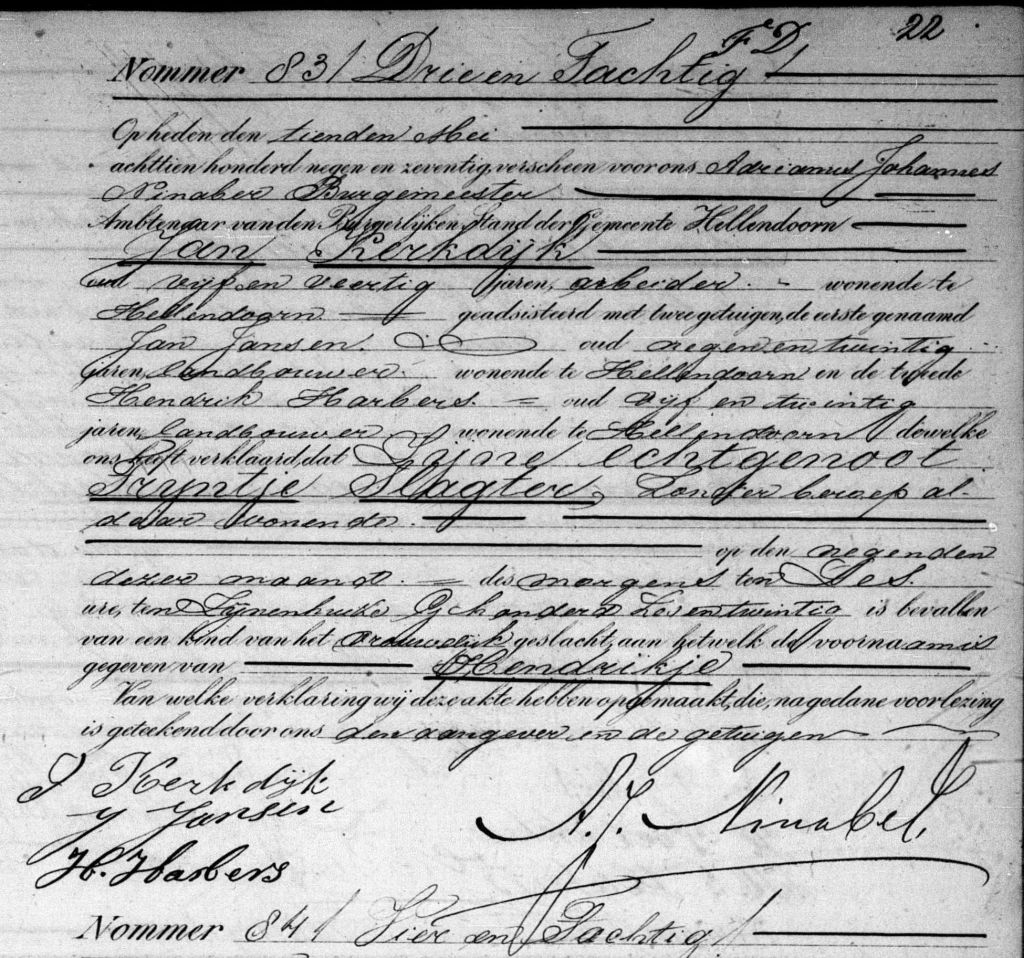 22
Nommer 83/ Drie en Tachtig
Op heden den tienden Mei
achttien honderd negen en zeventig, verscheen voor ons Adrianus Johannes
Ninaber Burgemeester
Ambtenaar van den Burgerlijken Stand der Gemeente Hellendoorn
Jan Kerkdijk
oud vijf en veertig jaren, arbeider wonende te
Hellendoorn geadsisteerd met twee getuigen, de eerste genaamd
Jan Jansen. oud negen en twintig
jaren, landbouwer wonende te Hellendoorn en de tweede
Hendrik Harbers. = oud vijf en twintig
jaren, landbouwer wonende te Hellendoorn dewelke
ons heeft verklaard, dat Zijne echtgenoot
Trijntje Slagter, Zonder beroep al-
daar wonende.
op den negenden
dezer maand. = des morgens ten Ses.
ure, ten Zijnenhuize honderd Zes en twintig is bevallen
van een kind van het vrouwelijk geslacht, aan hetwelk de voornaam is
gegeven van Hendrikje
Van welke verklaring wij deze akte hebben opgemaakt, die, na gedane voorlezing
is geteekend door ons den aangever en de getuigen
J Kerkdijk
J Jansen
A.J. Ninaber
H. Harbers
Nommer 84/ Vier en Tachtig